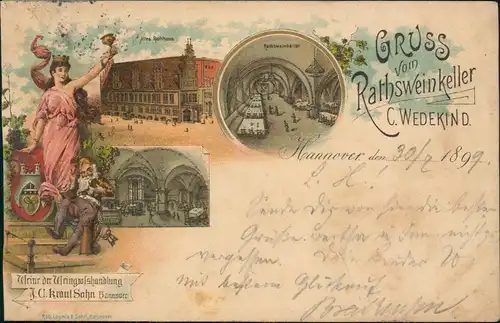 Altes Rathhaus.
Rathsweinkeller
GRUSS
vom
Rathsweinkeller
C. WEDEKIND.
Hannover, den 30/7 1899
L. H.!
Sende Dir von hier die besten
Grüße. Bertha u
vergessen. Die Kinder
Mit bestem Glückauf
Weine der Weingrosshandlung
J. C. Kraul Sohn Hannover.